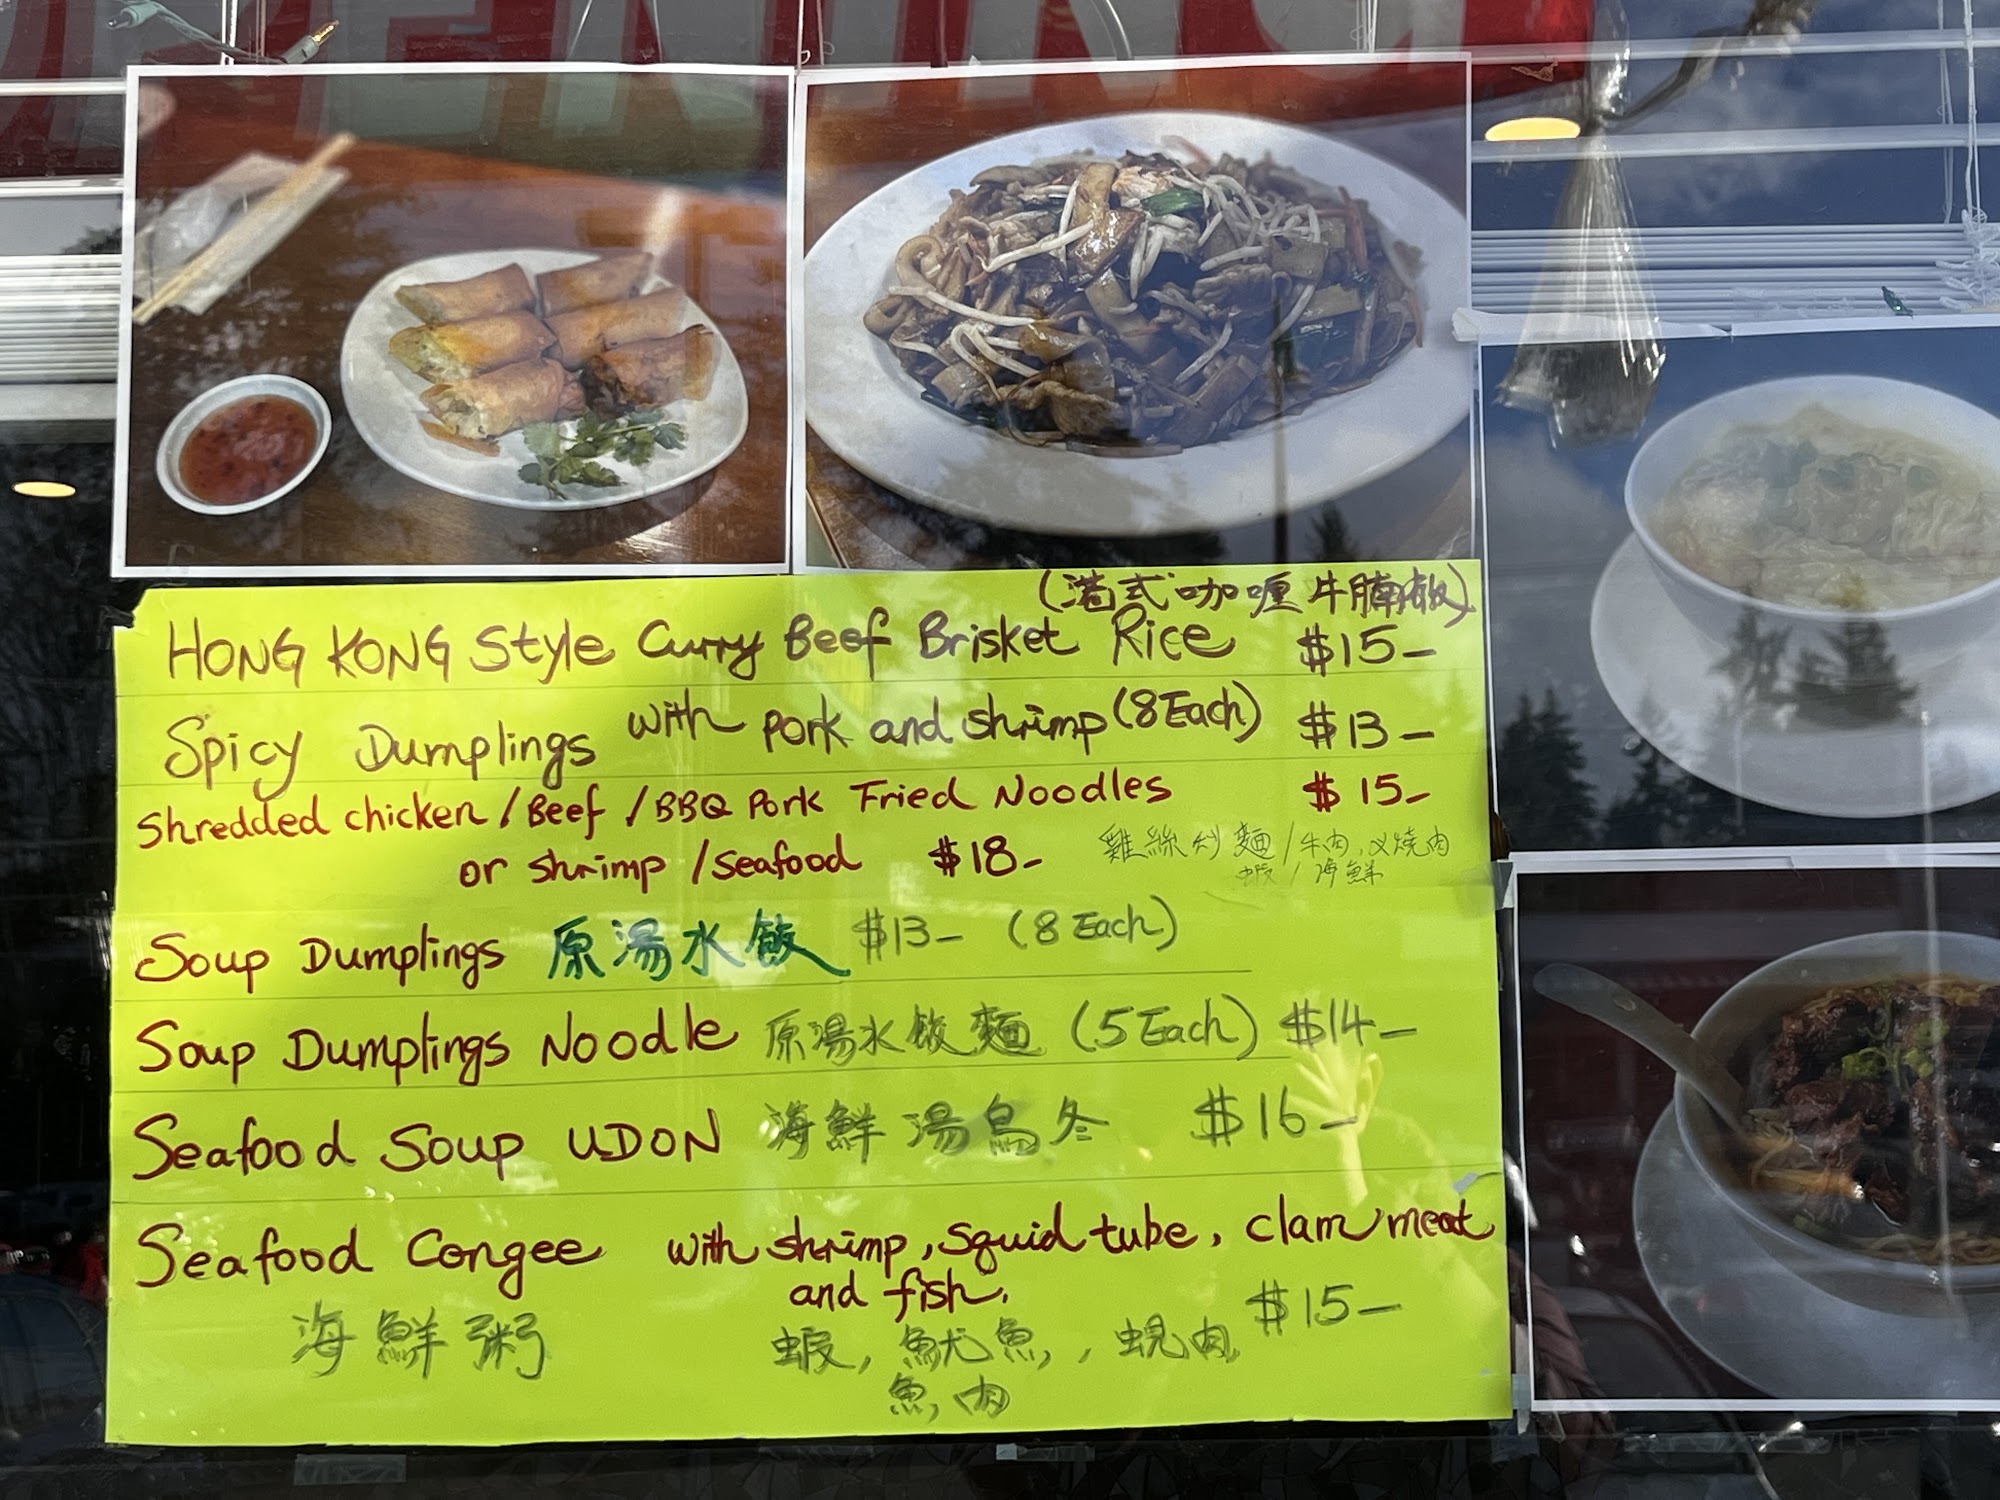 OPENING
(港式咖喱牛腩飯)
HONG KONG Style Curry Beef Brisket Rice $15-
Spicy Dumplings with pork and shrimp (8 Each) $13-
Shredded chicken / Beef / BBQ Pork Fried Noodles $15-
or shrimp / Seafood $18- 雞絲炒麵 / 牛肉, 叉燒肉
蝦 / 海鮮
Soup Dumplings 原湯水餃 $13- (8 Each)
Soup Dumplings Noodle 原湯水餃麵 (5 Each) $14-
Seafood Soup UDON 海鮮湯烏冬 $16-
Seafood Congee with shrimp, squid tube, clam meat
and fish. $15-
海鮮粥 蝦, 魷魚, 蜆肉
魚肉